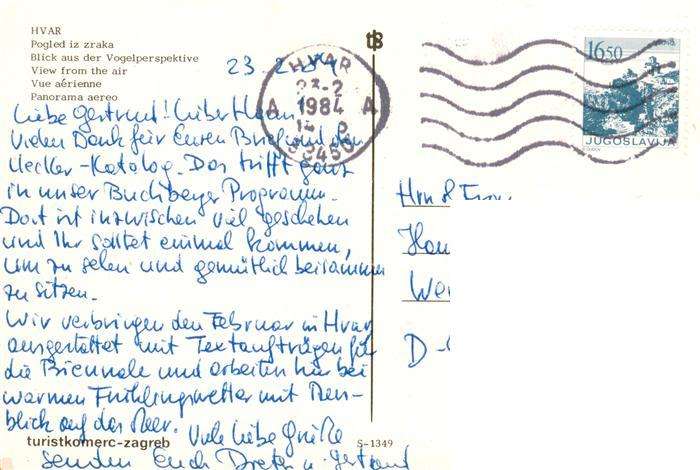 HVAR
Pogled iz zraka
Blick aus der Vogelperspektive
View from the air
Vue aérienne
Panorama aereo
23.2.84
HVAR
23-2
1984
A A
58450
1650
JUGOSLAVIJA
Liebe Gertrud! Lieber Hans
Vielen Dank für Euren Brief und den
Uecker-Katalog. Das trifft ganz
in unser Buchberger Programm.
Dort ist inzwischen viel geschehen
und Ihr solltet einmal kommen,
um zu sehen und gemütlich beisammen
zu sitzen.
Wir verbringen den Februar in Hvar
ausgestattet mit Textaufträgen für
die Biennale und arbeiten hier bei
warmen Frühlingswetter mit Meer-
blick auf das Meer.
Viele liebe Grüße
senden Euch Dieter u. Gertraud
Hrn & Frau
D-
turistkomerc-zagreb
S-1349